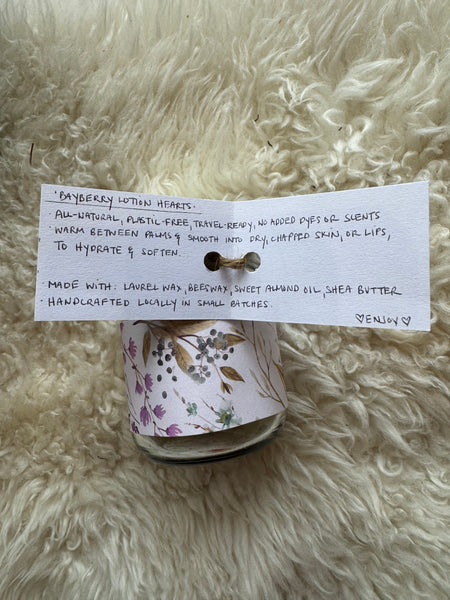 · BAYBERRY LOTION HEARTS ·
· ALL-NATURAL, PLASTIC-FREE, TRAVEL-READY, NO ADDED DYES OR SCENTS
· WARM BETWEEN PALMS & SMOOTH INTO DRY, CHAPPED SKIN, OR LIPS,
TO HYDRATE & SOFTEN.
· MADE WITH: LAUREL WAX, BEESWAX, SWEET ALMOND OIL, SHEA BUTTER
· HANDCRAFTED LOCALLY IN SMALL BATCHES.
♡ENJOY♡